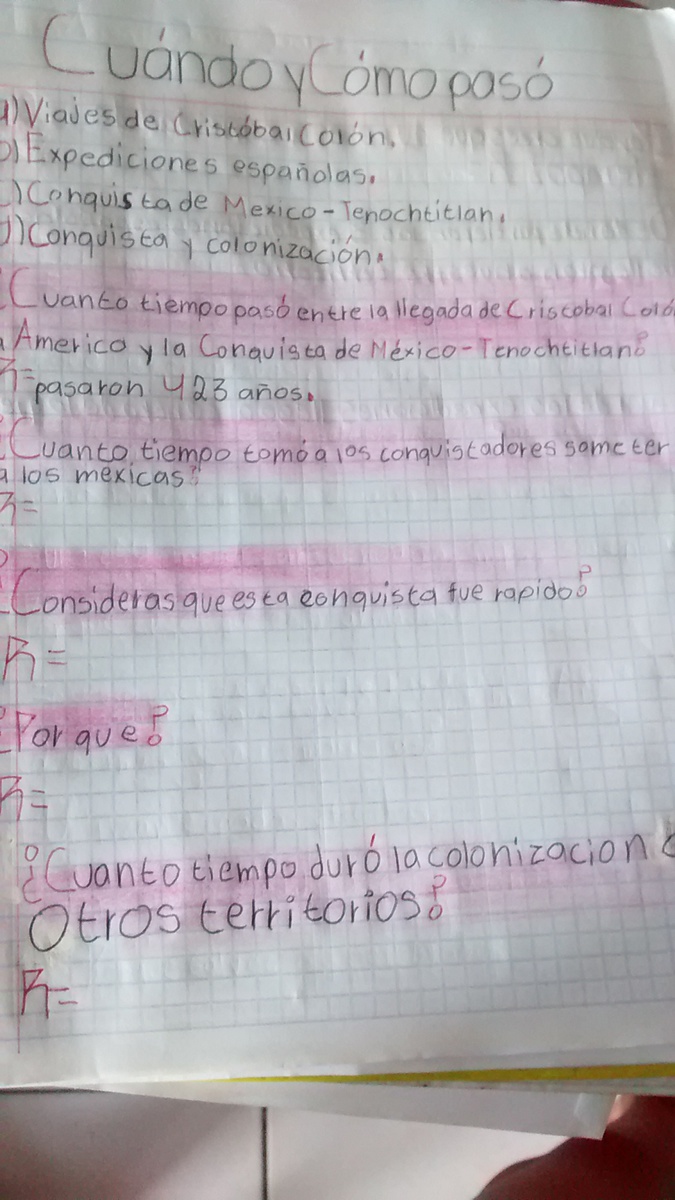 Cuándo y Cómo pasó
a) Viajes de Cristóbal Colón.
b) Expediciones españolas.
c) Conquista de Mexico-Tenochtitlan.
d) Conquista y colonización.
¿Cuanto tiempo pasó entre la llegada de Criscobal Coló
a Americo y la Conquista de México-Tenochtitlan?
R= pasaron 423 años.
¿Cuanto tiempo tomó a los conquistadores someter
a los mexicas?
R=
¿Consideras que esta conquista fue rapido?
R=
¿Por que?
R=
¿Cuanto tiempo duró la colonizacion
Otros territorios?
R=